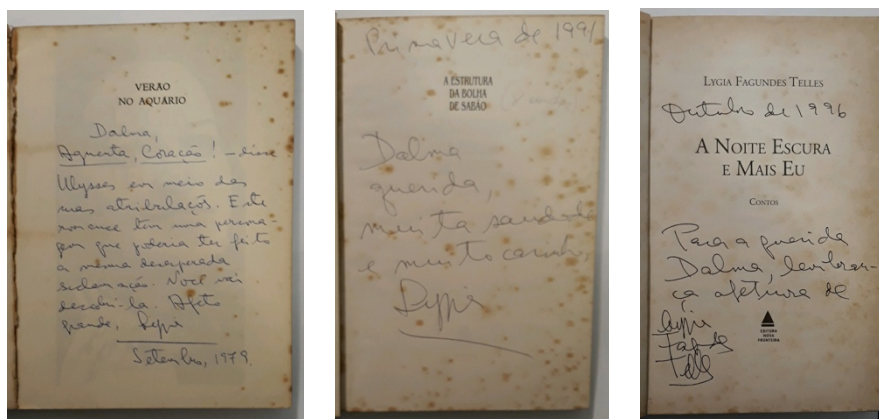 VERÃO
NO AQUÁRIO
Dalma,
Aguenta, Coração! - disse
Ulysses em meio das
suas atribulações. Este
romance tem uma persona-
gem que poderia ter feito
a mesma desesperada
exclamação. Você vai
descobri-la. Afeto
grande, Lygia
Setembro, 1979.
Primavera de 1991
A ESTRUTURA
DA BOLHA
DE SABÃO
Dalma
querida,
muita saudade
e muito carinho,
Lygia
LYGIA FAGUNDES TELLES
Outubro de 1996
A NOITE ESCURA
E MAIS EU
CONTOS
Para a querida
Dalma, lembran-
ça afetuosa de
Lygia
Fagundes
Telles
EDITORA
NOVA
FRONTEIRA